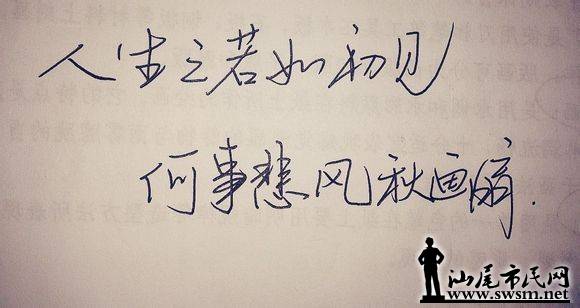 人生之若如初见
何事悲风秋画扇.
汕尾市民网
www.swsm.net